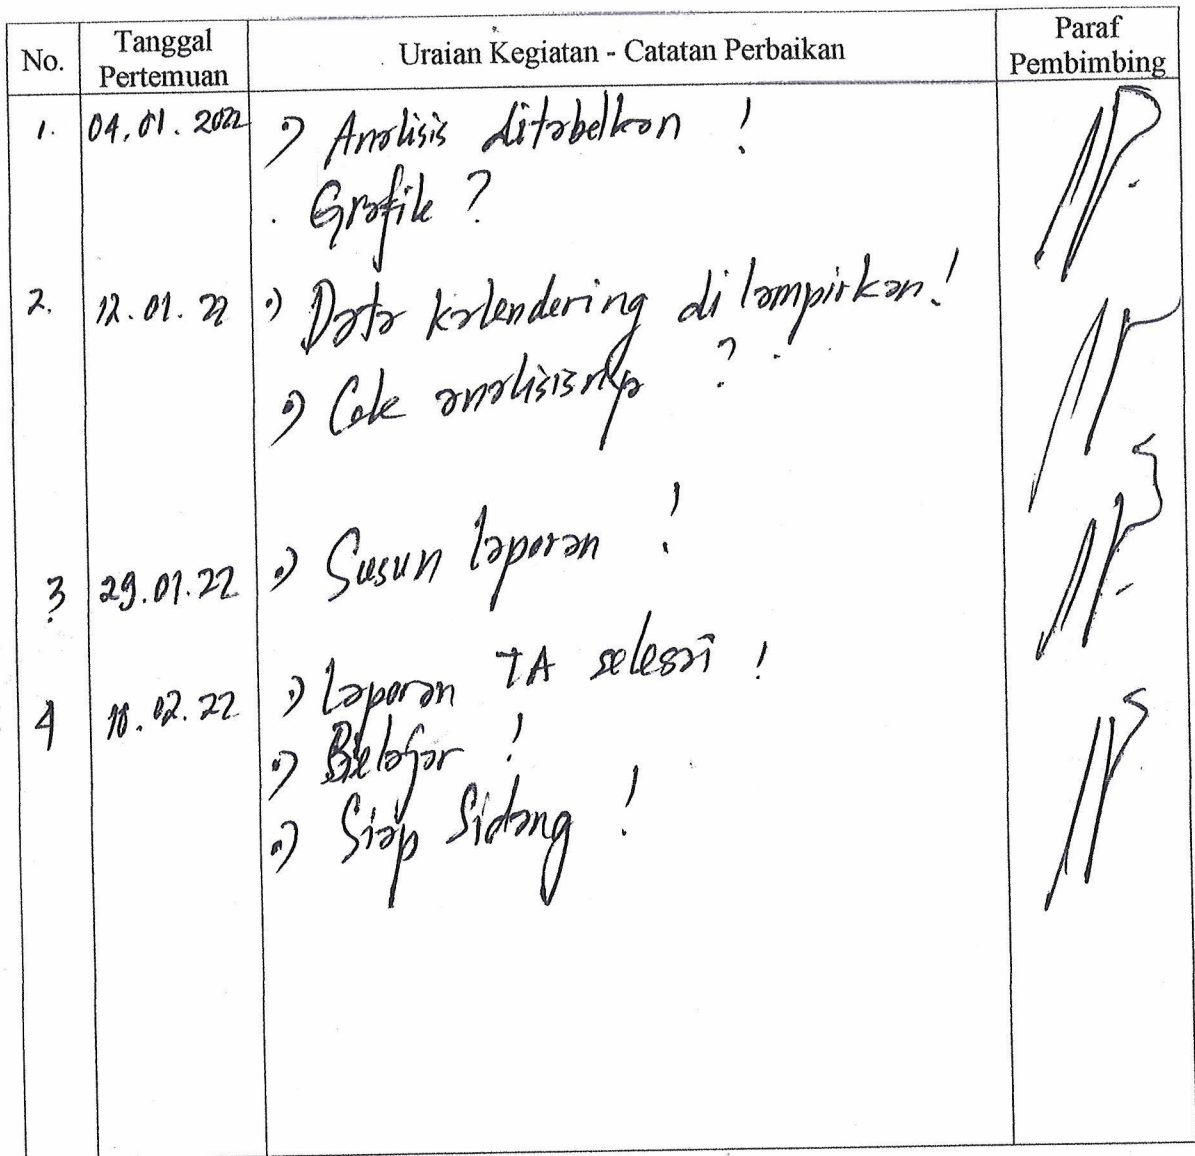 No. Tanggal Pertemuan Uraian Kegiatan - Catatan Perbaikan Paraf Pembimbing
1. 04.01.2022 Analisis ditabelkan !
Grafik ?
2. 12.01.22 Data kalendering dilampirkan!
Cek analisisnya ?
3 29.01.22 Susun laporan !
4 Laporan TA selesai !
Belajar !
Siap Sidang !